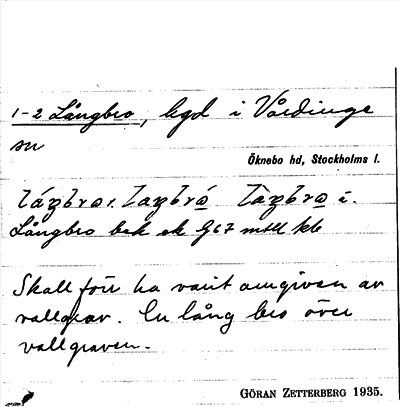 1-2 Långbro, hgd i Vårdinge
sn
Öknebo hd, Stockholms l.
Långbro bek ek G67 mtll kb
Skall förr ha varit omgiven av
vallgrav. En lång bro över
vallgraven.
GÖRAN ZETTERBERG 1935.